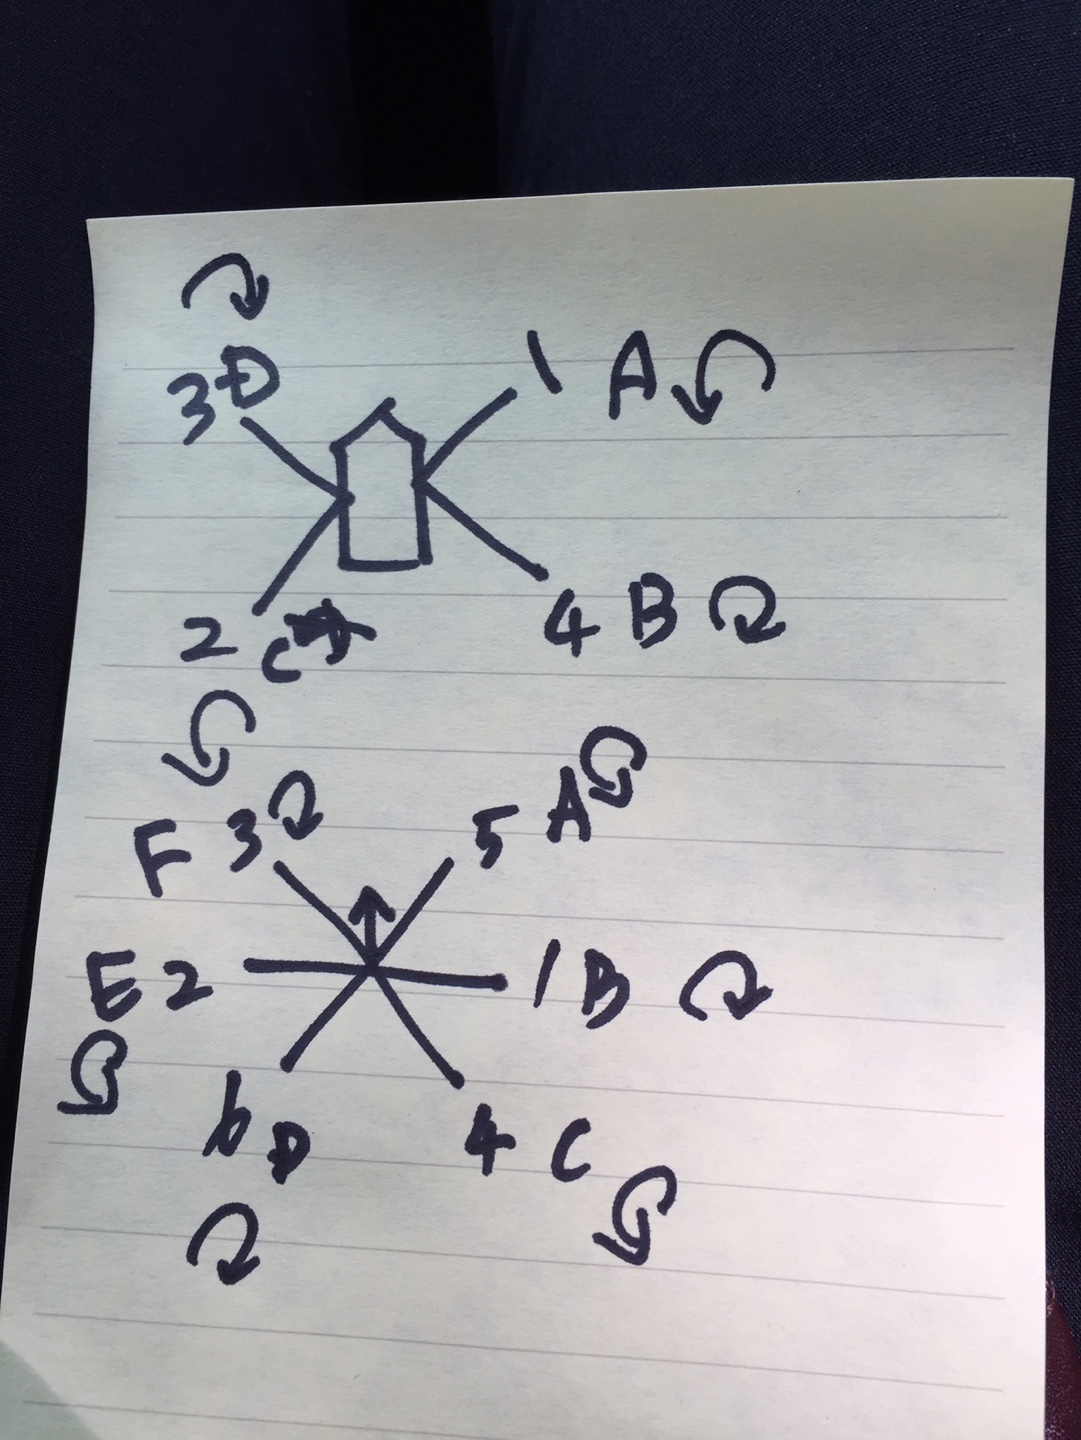 3D
1 A
2 C
4 B
F 3
5 A
E 2
1 B
6 D
4 C